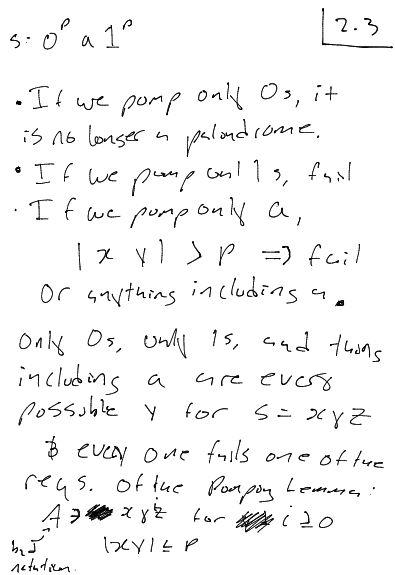 2.3
s: 0^p a 1^p
• If we pump only 0s, it
is no longer a palondrome.
• If we pump onl 1s, fail
• If we pump only a,
|x y| > p => fail
Or anything including a.
Only 0s, only 1s, and things
including a are every
possible y for s = xyz
every one fails one of the
reqs. of the Pumping Lemma:
A ∋ x y^i z for i ≥ 0
bad |xy| ≤ p
notation.